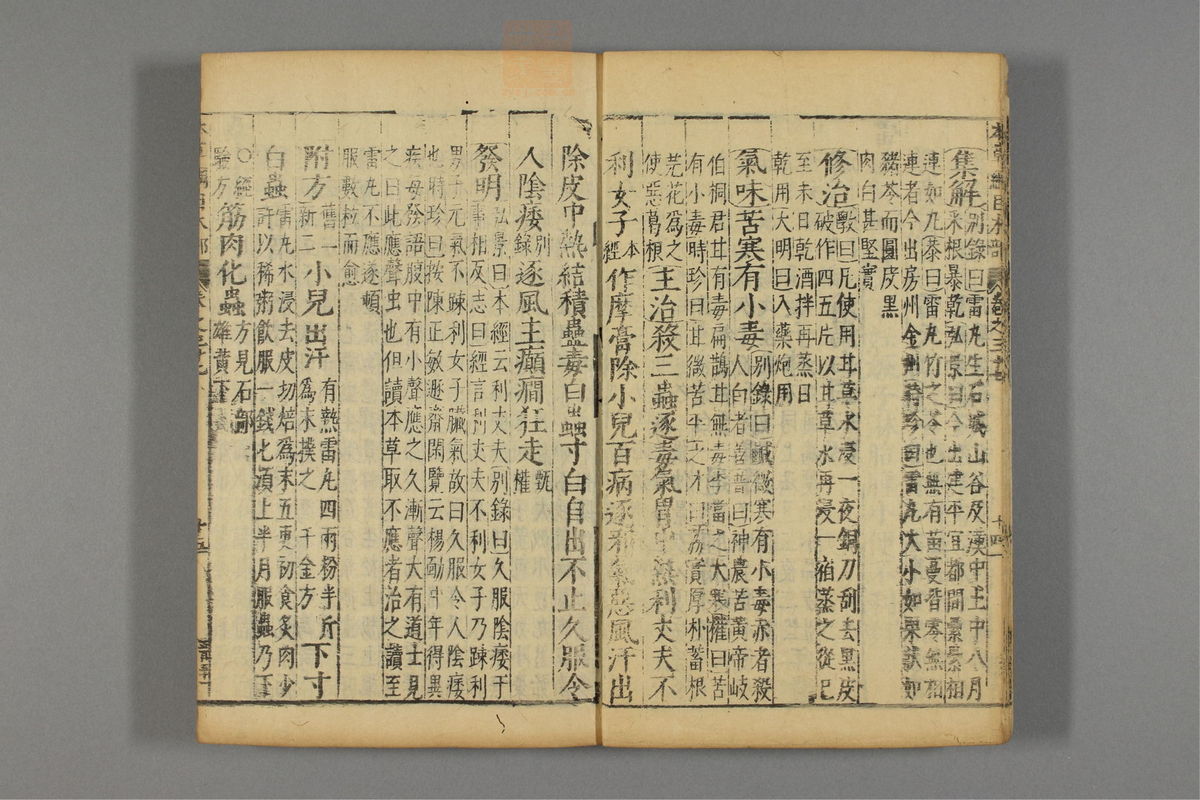 集解別錄曰雷丸生石城山谷及漢中土中八月
采根暴乾弘景曰今出建平宜都間纍纍相
連如丸恭曰雷丸竹之苓也無有苗蔓皆零無相
連者今出房州金州時珍曰雷丸大小如栗狀如
豬苓而圓皮黑
肉白甚堅實
修治斅曰凡使用甘草水浸一夜銅刀刮去黑皮
破作四五片以甘草水再浸一宿蒸之從巳
至未日乾酒拌再蒸日
乾用大明曰入藥炮用
氣味苦寒有小毒別錄曰鹹微寒有小毒赤者殺
人白者善普曰神農苦黃帝岐
伯桐君甘有毒扁鵲甘無毒李當之大寒權曰苦
有小毒時珍曰甘微苦平之才曰 厚朴蓄根
芫花為之
使惡葛根
主治殺三蟲逐毒氣胃中熱利丈夫不
利女子本經作摩膏除小兒百病逐邪氣惡風汗出
除皮中熱結積蠱毒白蟲寸白自出不止久服令
人陰痿別錄逐風主癲癇狂走甄權
發明弘景曰本經云利丈夫別錄曰久服陰痿于
事相反志曰經言利丈夫不利女子乃疎利
男子元氣不疎利女子臟氣故曰久服令人陰痿
也時珍曰按陳正敏遯齋閑覽云楊勔中年得異
疾每發語腹中有小聲應之久漸聲大有道士見
之曰此應聲虫也但讀本草取不應者治之讀至
雷丸不應遂頓
服數粒而愈
附方舊一新二小兒出汗有熱雷丸四兩粉半斤
為末撲之千金方
下寸
白蟲雷丸水浸去皮切焙為末五更初食炙肉少
許以稀粥飲服一錢匕須上半月服蟲乃下
○經
驗方
筋肉化蟲方見石部
雄黃下